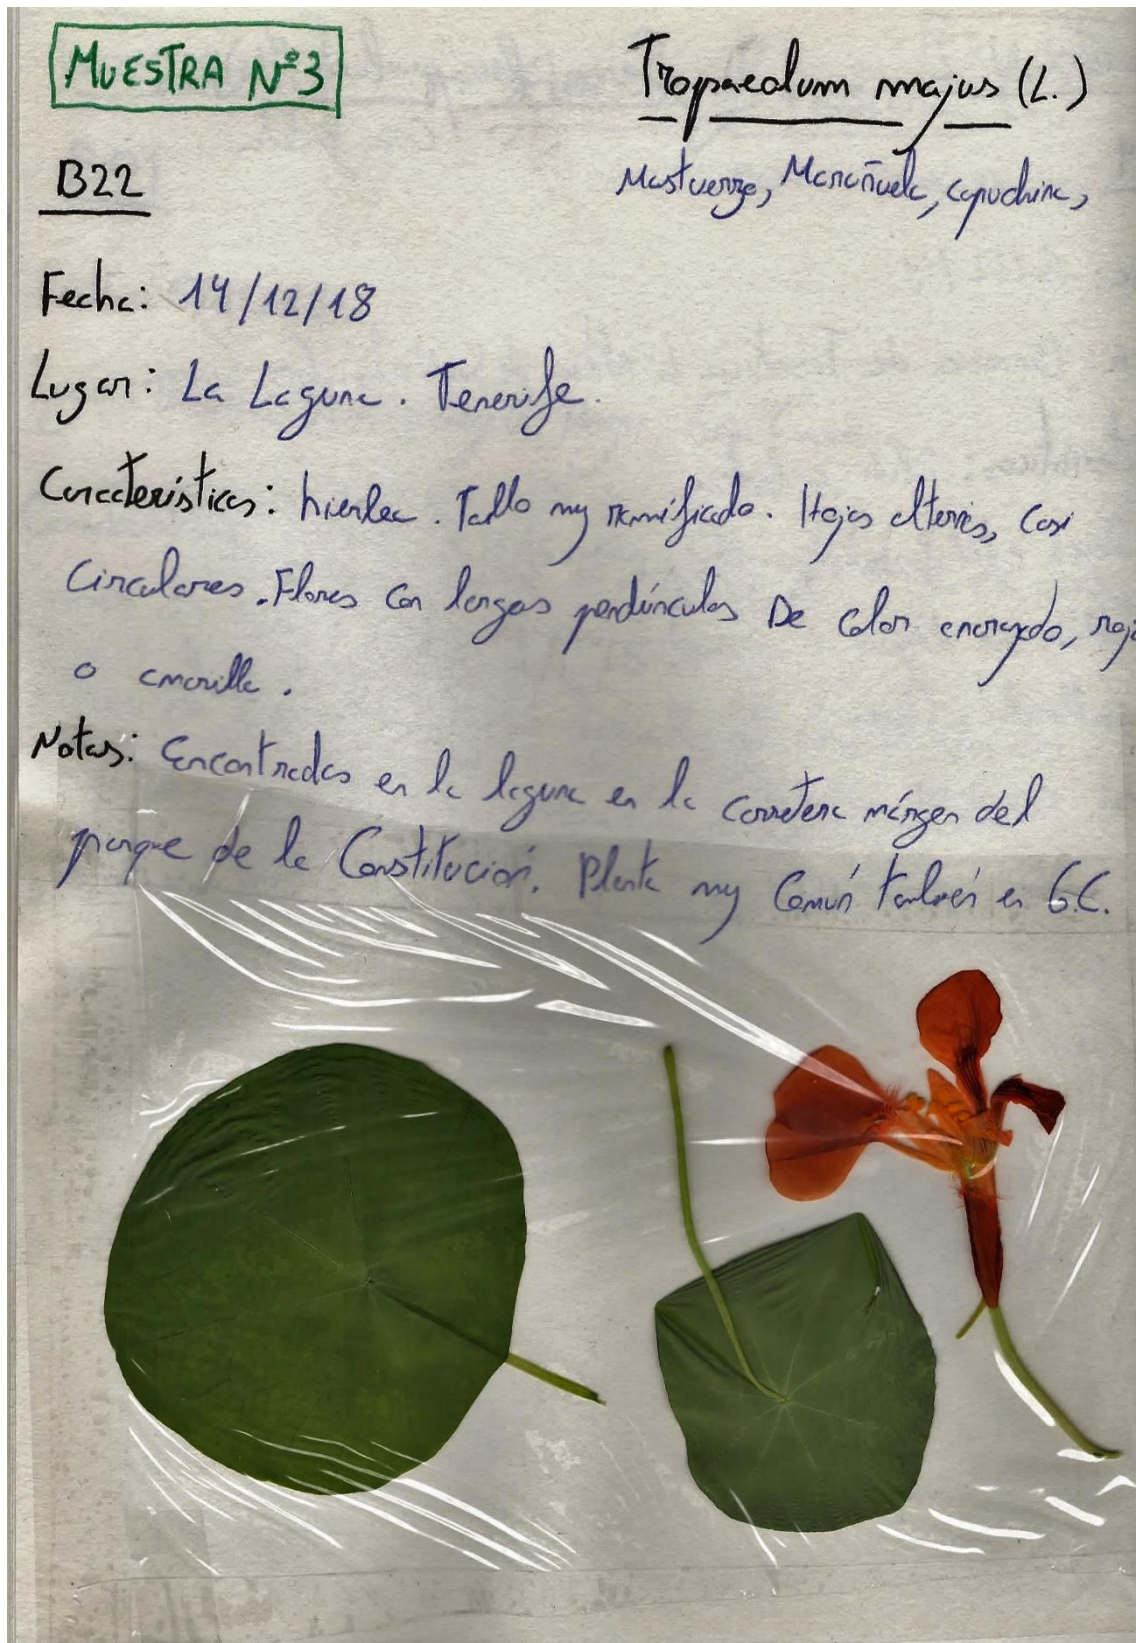 MUESTRA Nº3
Tropaeolum majus (L.)
B22
Mastuerzo, Marañuela, capuchina,
Fecha: 14/12/18
Lugar: La Laguna. Tenerife.
Características: hierba. Tallo muy ramificado. Hojas alternas, casi
Circulares. Flores con largos pendúnculos De color anaranjado, rojo
o amarillo.
Notas: Encontradas en la laguna en la carretera márgen del
parque de la Constitución. Planta muy Común también en G.C.